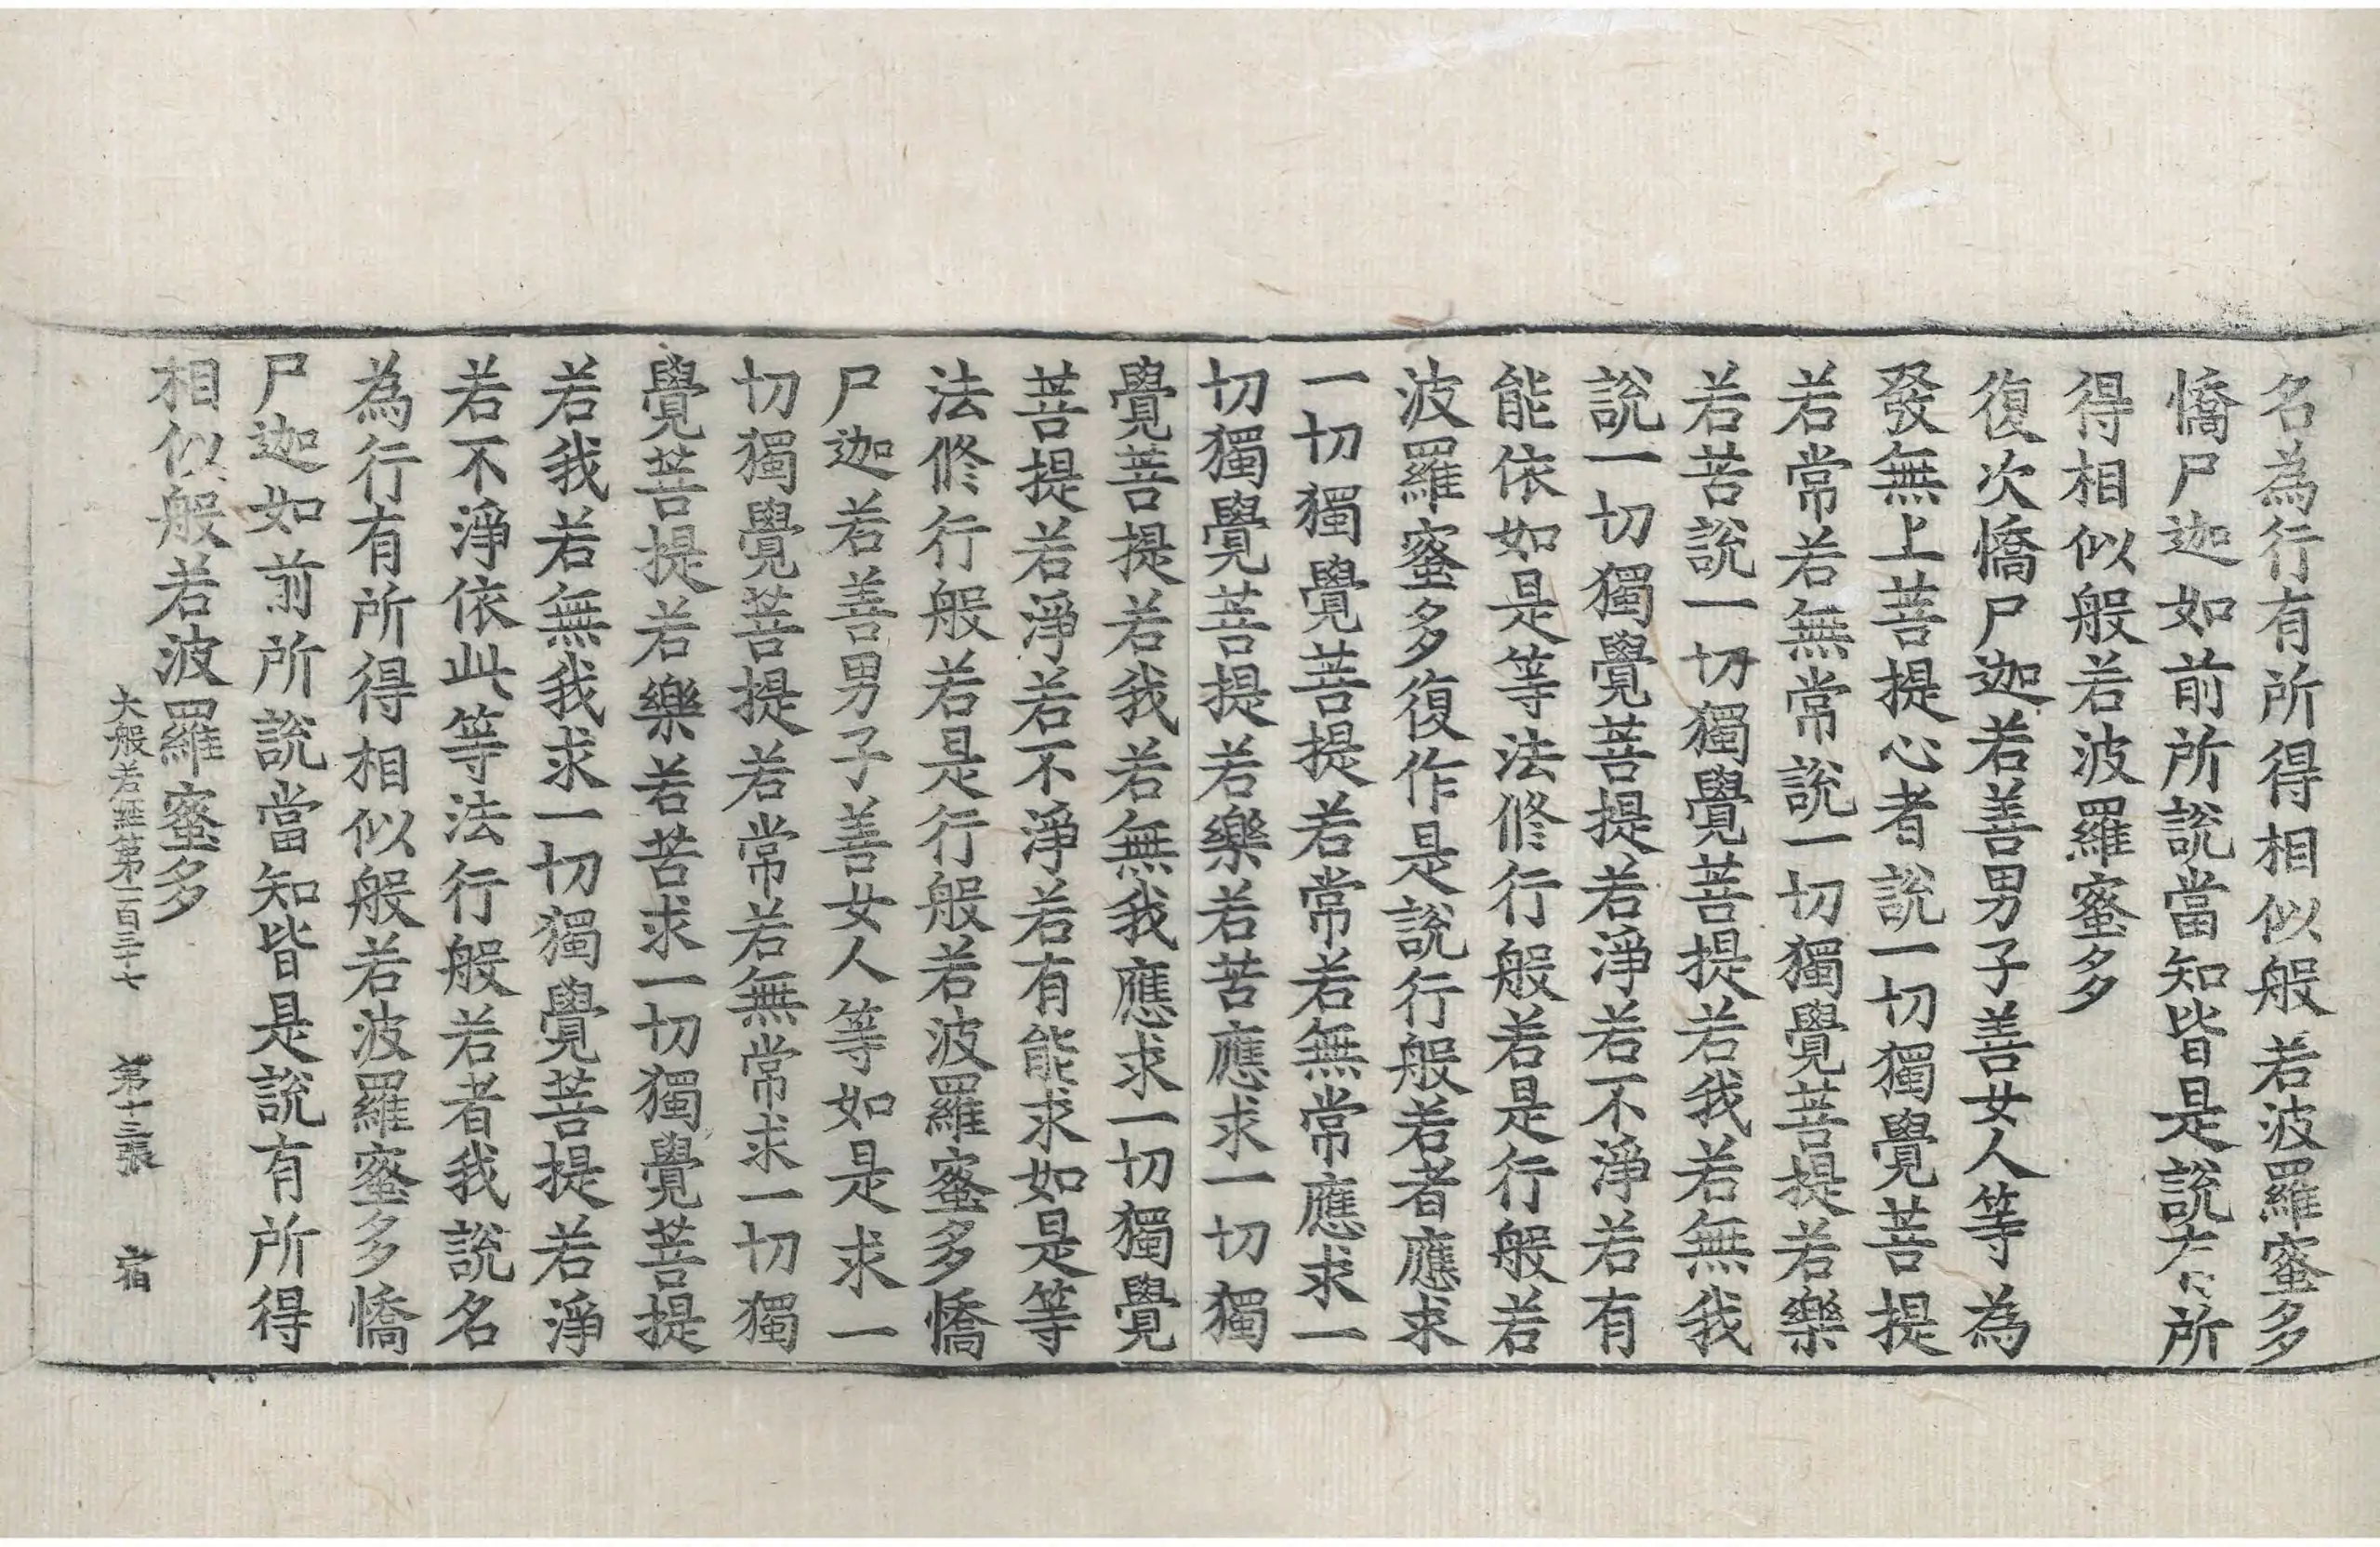 名為行有所得相似般若波羅蜜多
憍尸迦如前所說當知皆是說有所
得相似般若波羅蜜多
復次憍尸迦若善男子善女人等為
發無上菩提心者說一切獨覺菩提
若常若無常說一切獨覺菩提若樂
若苦說一切獨覺菩提若我若無我
說一切獨覺菩提若淨若不淨若有
能依如是等法修行般若是行般若
波羅蜜多復作是說行般若者應求
一切獨覺菩提若常若無常應求一
切獨覺菩提若樂若苦應求一切獨
覺菩提若我若無我應求一切獨覺
菩提若淨若不淨若有能求如是等
法修行般若是行般若波羅蜜多憍
尸迦若善男子善女人等如是求一
切獨覺菩提若常若無常求一切獨
覺菩提若樂若苦求一切獨覺菩提
若我若無我求一切獨覺菩提若淨
若不淨依此等法行般若者我說名
為行有所得相似般若波羅蜜多憍
尸迦如前所說當知皆是說有所得
相似般若波羅蜜多
大般若經第一百三十七 第十三張 宿